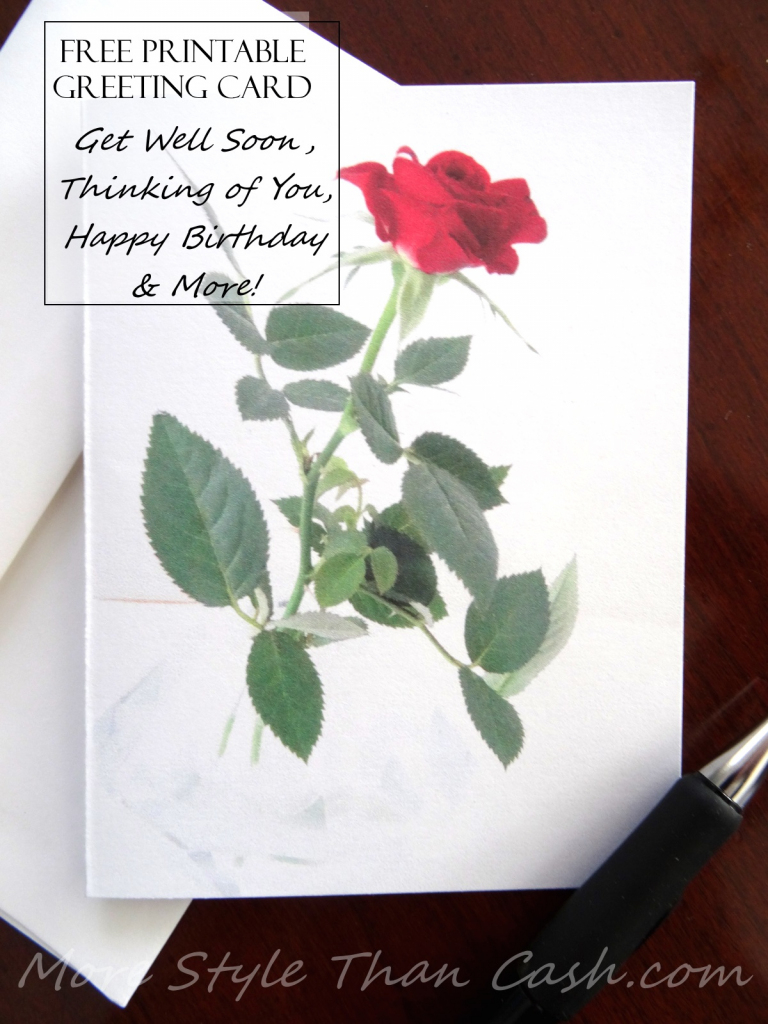 FREE PRINTABLE
GREETING CARD
Get Well Soon,
Thinking of You,
Happy Birthday
& More!
More Style Than Cash.com